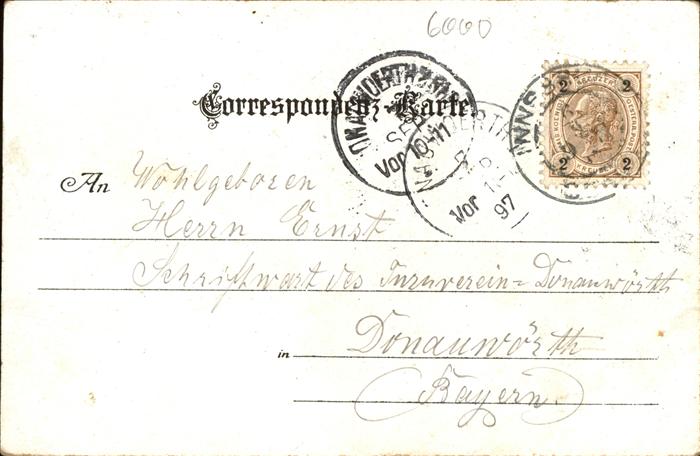 6000
Correspondenz-Karte
2 KREUZER 2
2 KREUZER 2
DONAUWOERTH
SEP
Vor 10-11
Vor 1-
97
INNS
An Wohlgeboren
Herrn Ernst
Schriftwart des Turnverein=Donauwörth
in Donauwörth
Bayern.